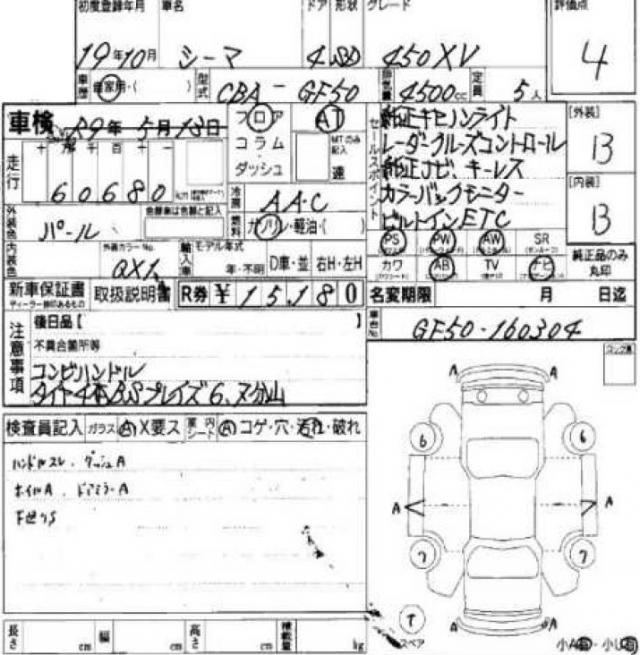 初度登録年月 車名 ドア 形状 グレード 評価点
19年10月 シーマ 4 450XV 4
車歴 自家用・( ) 型式 CBA-GF50 排気量 4500cc 定員 5人
車検 R9年5月13日 フロア AT
コラム MTのみ記入
ダッシュ 速
走行 十万千百十一
60680
セールスポイント
純正キセノンライト
レーダークルーズコントロール
純正ナビ、キーレス
カラーバックモニター
ビルトインETC
[外装] B
[内装] B
純正品のみ丸印
外装色 パール 色替車は色替と記入
冷房 AAC
燃料 ガソリン・軽油・( )
内装色 外装カラーNo. QX1
輸入車 モデル年式 年・不明 D車・並 右H・左H
PS PW AW SR
カワ AB TV ナビ
新車保証書 取扱説明書 R券 ¥15,180 名変期限 月 日迄
ディーラー捺印あるもの
車台No. GF50-160304
注意事項
後日品[ ]
不具合箇所等
コンビハンドル
タイヤ4本BSプレイズ6、7分山
検査員記入 ガラス A X要ス 車内シート A コゲ・穴・汚れ・破れ
ハンドルスレ、ダッシュA
ホイルA、ドアミラーA
下廻りS
A A
6 6
A A
7 7
A A
T スペア
長さ cm 幅 cm 高さ cm 積載量 kg
小A有・小U有